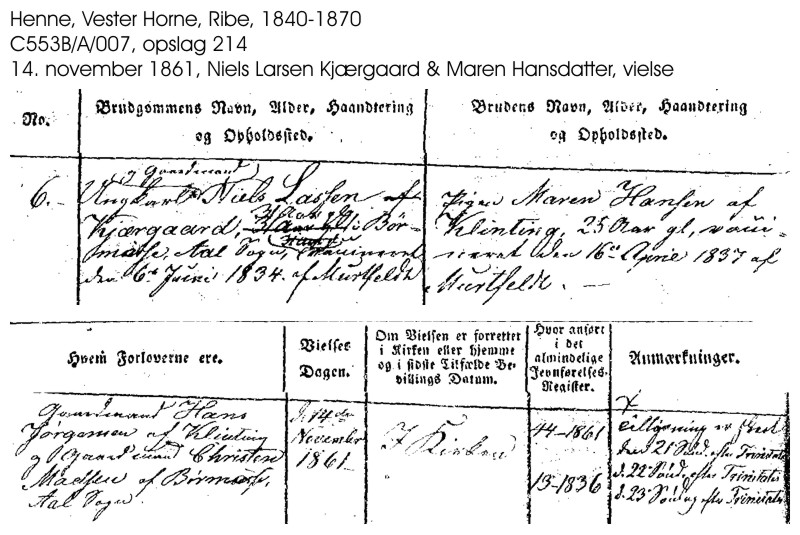 Henne, Vester Horne, Ribe, 1840-1870
C553B/A/007, opslag 214
14. november 1861, Niels Larsen Kjærgaard & Maren Hansdatter, vielse
No.
Brudgommens Navn, Alder, Haandtering
og Opholdssted.
Brudens Navn, Alder, Haandtering
og Opholdssted.
og Gaardmand
6. Ungkarl Niels Lassen af
Kjærgaard, Aar gl, i Bør-
massе, Aal Sogn, vaccineret
den 6te Juni 1834 af Murtfeldt
Pigen Maren Hansen af
Klinting, 25 Aar gl, vacci-
neret den 16de April 1837 af
Murtfeldt.
Hvem Forloverne ere.
Vielses
Dagen.
Om Vielsen er forrettet
i Kirken eller hjemme
og i sidste Tilfælde Be-
villings Datum.
Hvor anført
i det
almindelige
Jevnførelses-
Register.
Anmærkninger.
Gaardmand Hans
Jørgensen af Klinting
og Gaardmand Christen
Madsen af Børmasse,
Aal Sogn.
d. 14de
November
1861
I Kirken
44-1861
13-1836
Tillysning er skeet
den 21 Sønd. efter Trinitatis
d. 22 Sønd. efter Trinitatis
d. 23 Søndag efter Trinitatis